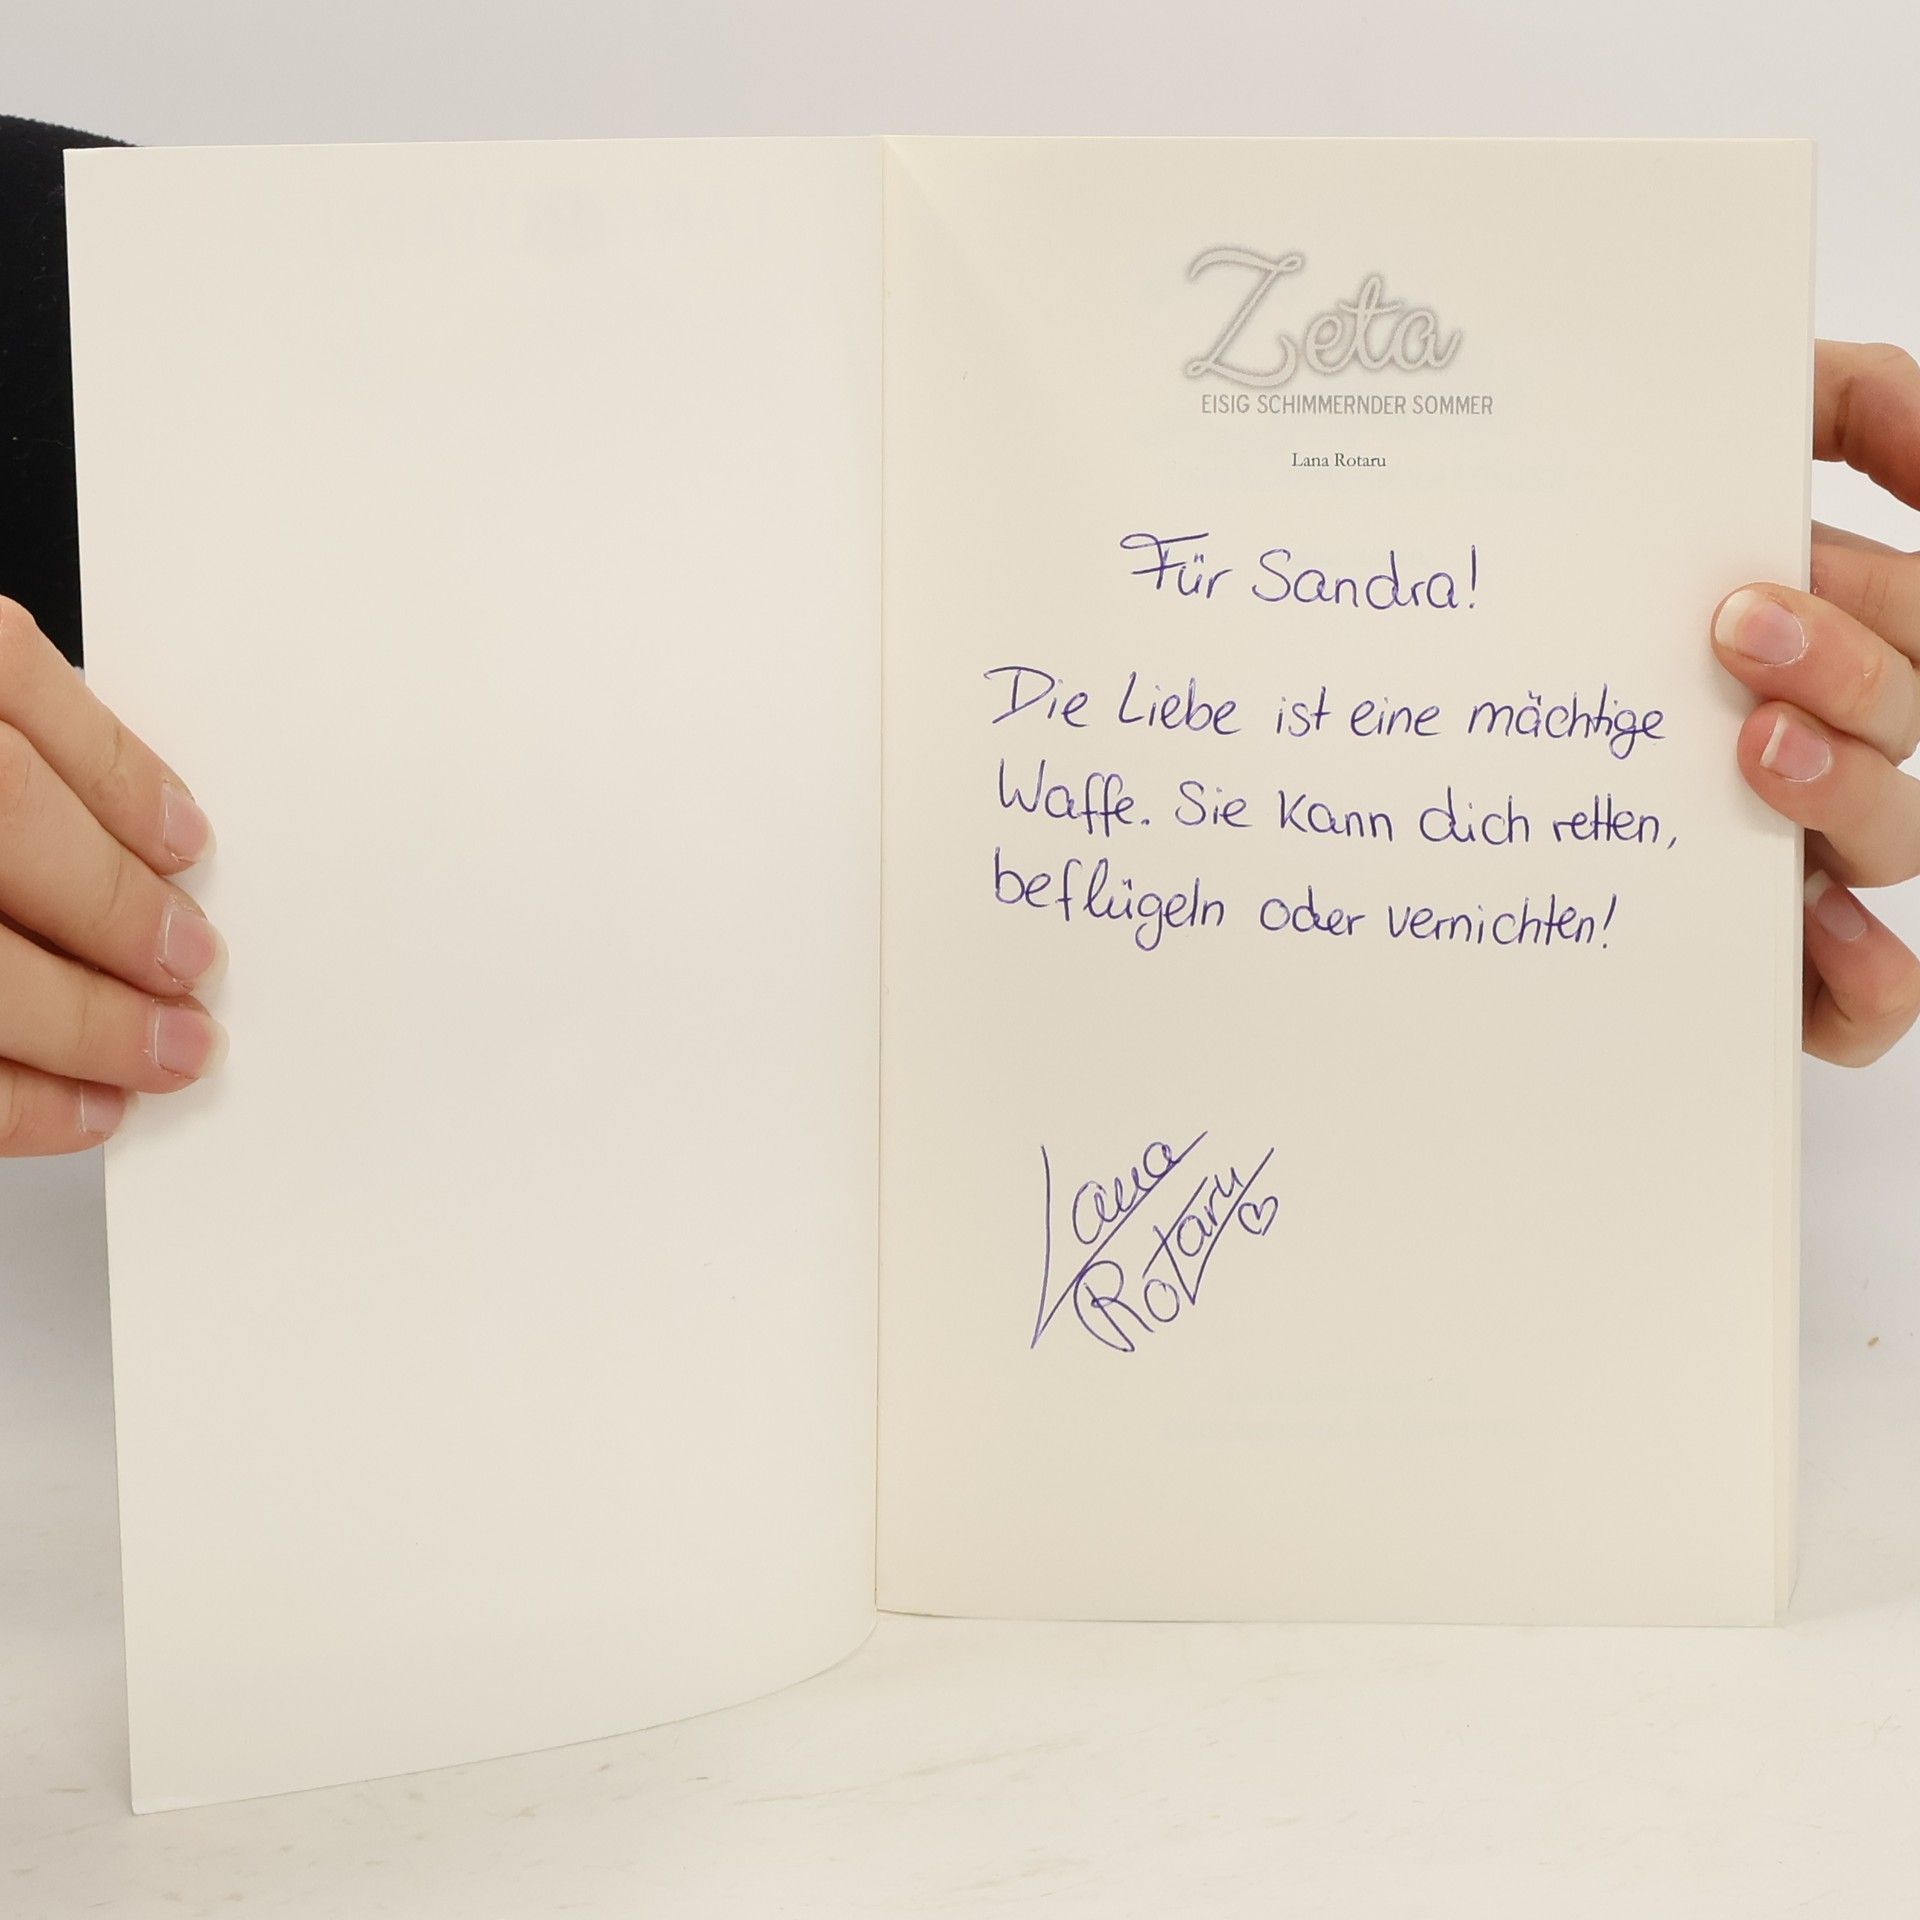 Zeta
EISIG SCHIMMERNDER SOMMER
Lana Rotaru
Für Sandra!
Die Liebe ist eine mächtige
Waffe. Sie kann dich retten,
beflügeln oder vernichten!
Lana
Rotaru